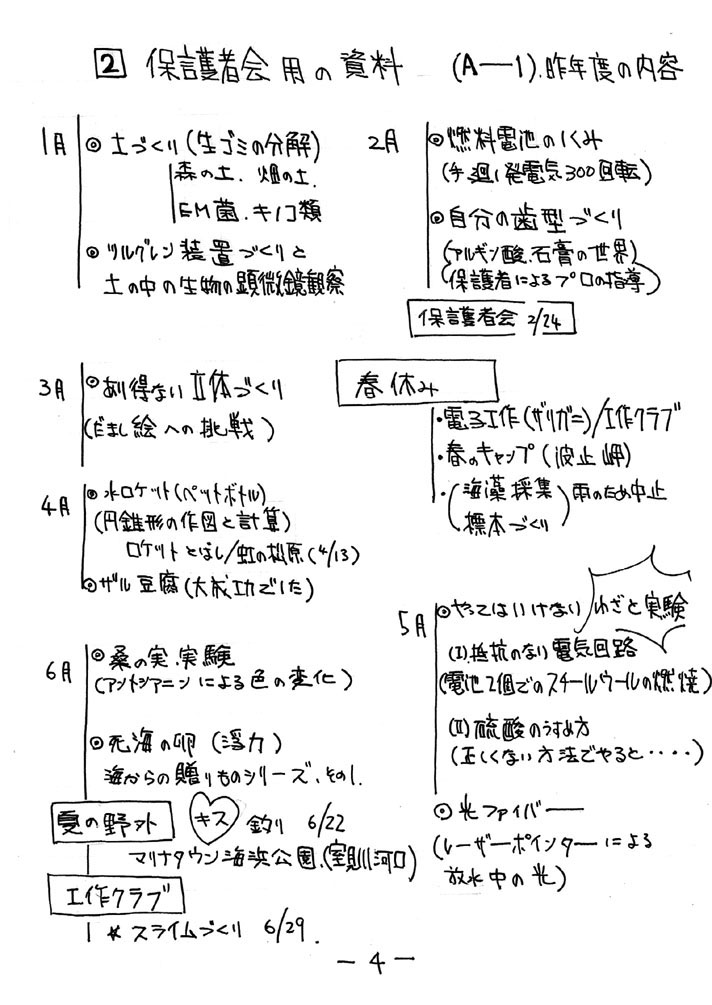 2 保護者会用の資料 (A-1).昨年度の内容
1月
◎土づくり(生ゴミの分解)
森の土.畑の土.
EM菌.キノコ類
◎ツルグレン装置づくりと
土の中の生物の顕微鏡観察
2月
◎燃料電池のしくみ
(手廻し発電気300回転)
◎自分の歯型づくり
(アルギン酸.石膏の世界)
(保護者によるプロの指導)
保護者会 2/24
3月
◎あり得ない立体づくり
(だまし絵への挑戦)
春休み
・電子工作(ザリガニ)/工作クラブ
・春のキャンプ(波止岬)
・(海藻採集
標本づくり)雨のため中止
4月
◎水ロケット(ペットボトル)
(円錐形の作図と計算)
ロケットとばし/虹の松原(4/13)
◎ザル豆腐(大成功でした)
5月
◎やってはいけない わざと実験
(I).抵抗のない電気回路
(電池2個でのスチールウールの燃焼)
(II)硫酸のうすめ方
(正しくない方法でやると・・・・)
◎光ファイバー
(レーザーポインターによる
放水中の光)
6月
◎桑の実.実験
(アントシアニンによる色の変化)
◎死海の卵(浮力)
海からの贈りものシリーズ.その1.
夏の野外 キス 釣り 6/22
マリナタウン海浜公園.(室見川河口)
工作クラブ
*スライムづくり 6/29.
-4-